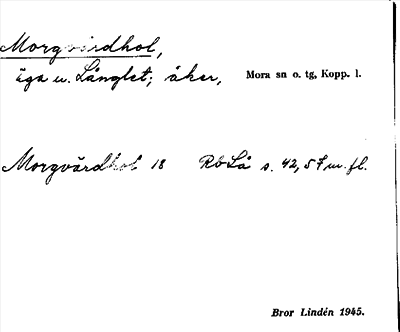 Morgvårdhol,
äga u. Långlet; åker, Mora sn o. tg, Kopp. l.
Morgvårdhol 18 RbLå s. 42, 57 m. fl.
Bror Lindén 1945.